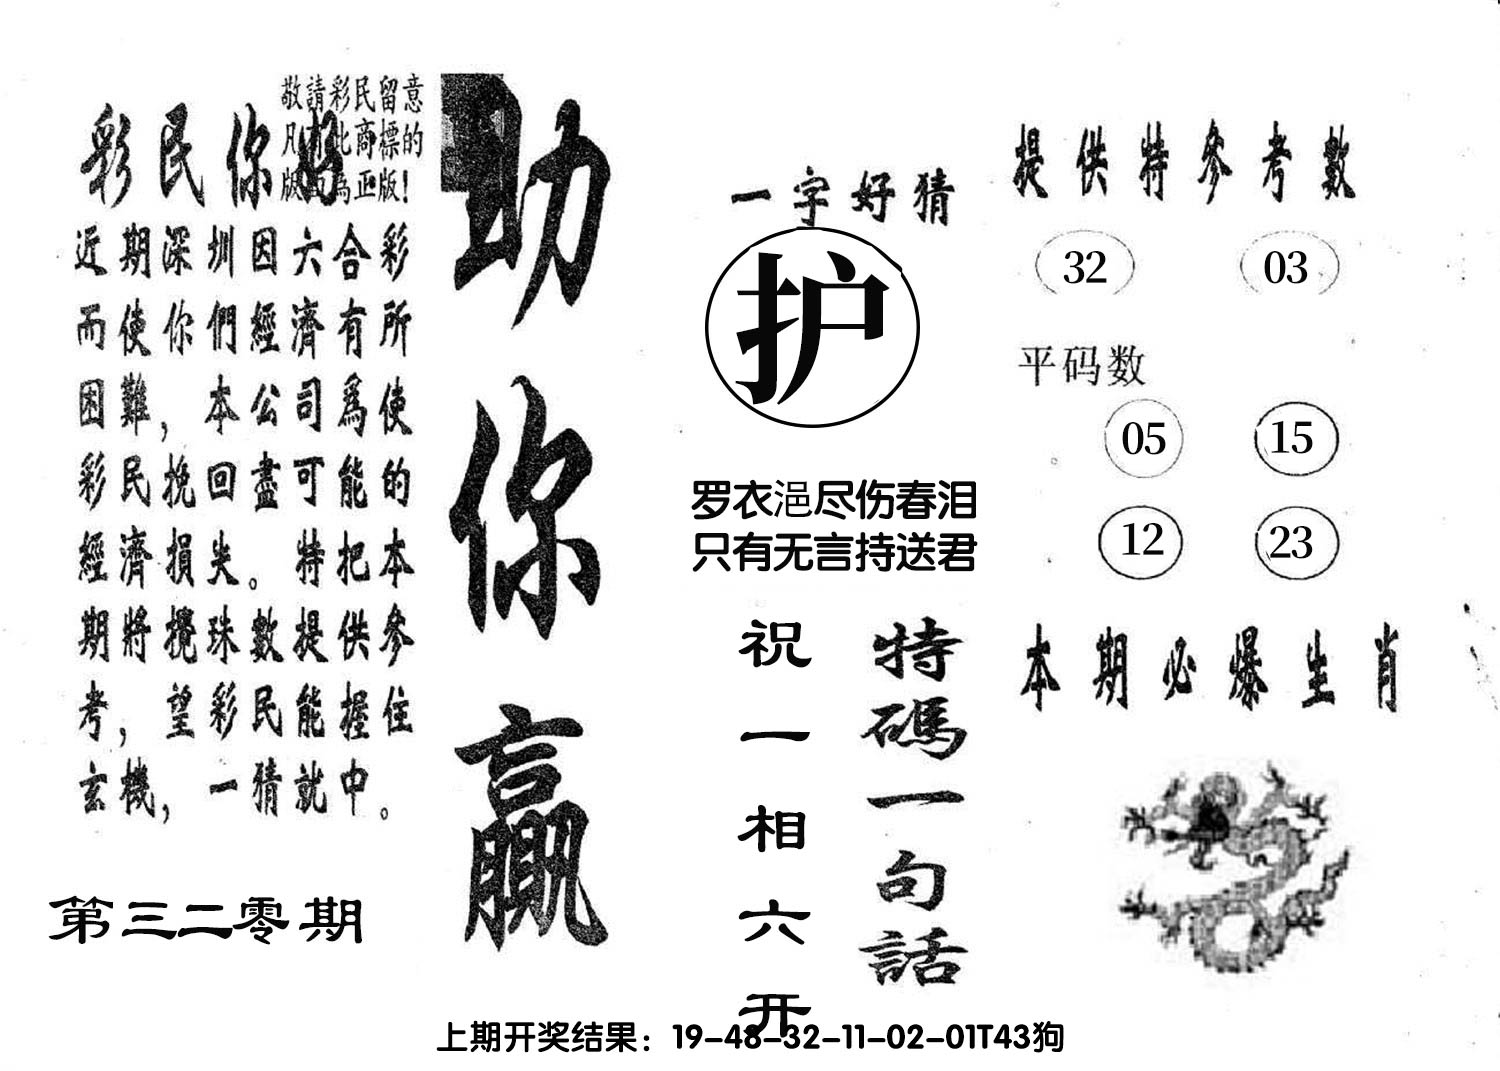 敬請彩民留意
凡有此商標的
版面為正版!
彩民你好
近期深圳因六合彩
而使你們經濟有所
困難，本公司爲使
彩民挽回盡可能的
經濟損失。特把本
期將攪珠數提供參
考，望彩民能握住
玄機，一猜就中。
第三二零期
助你贏
一字好猜
护
罗衣浥尽伤春泪
只有无言持送君
特碼一句話
祝一相六开
提供特参考數
32 03
平码数
05 15
12 23
本期必爆生肖
上期开奖结果：19-48-32-11-02-01T43狗